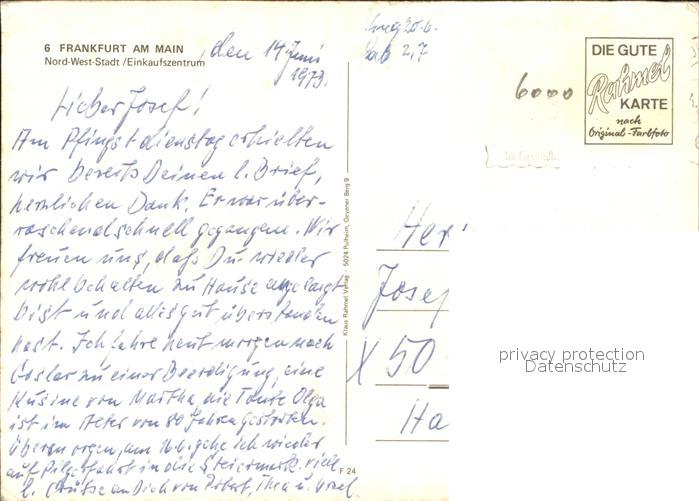 6 FRANKFURT AM MAIN
Nord-West-Stadt /Einkaufszentrum
, den 14 Juni
1973.
Lieber Josef!
Am Pfingstdienstag erhielten
wir bereits Deinen l. Brief,
herzlichen Dank. Er war über-
raschend schnell gegangen. Wir
freuen uns, daß Du wieder
wohlbehalten zu Hause angelangt
bist und alles gut überstanden
hast. Ich fahre heut morgen nach
Goslar zu einer Beerdigung, eine
Kusine von Martha, die Tante Olga
ist im Alter von 80 Jahren gestorben.
Übermorgen, am 16.6. gehe ich wieder
auf Pilgerfahrt in die Steiermark. Viele
l. Grüße an Dich von Robert, Thea u.
Klaus Rahmel Verlag · 5024 Pulheim, Geyener Berg 9
F 24
ab 2,7
6000
DIE GUTE
Rahmel
KARTE
nach
Original-Farbfoto
Her
Josef
X 50
Ha
privacy protection
Datenschutz